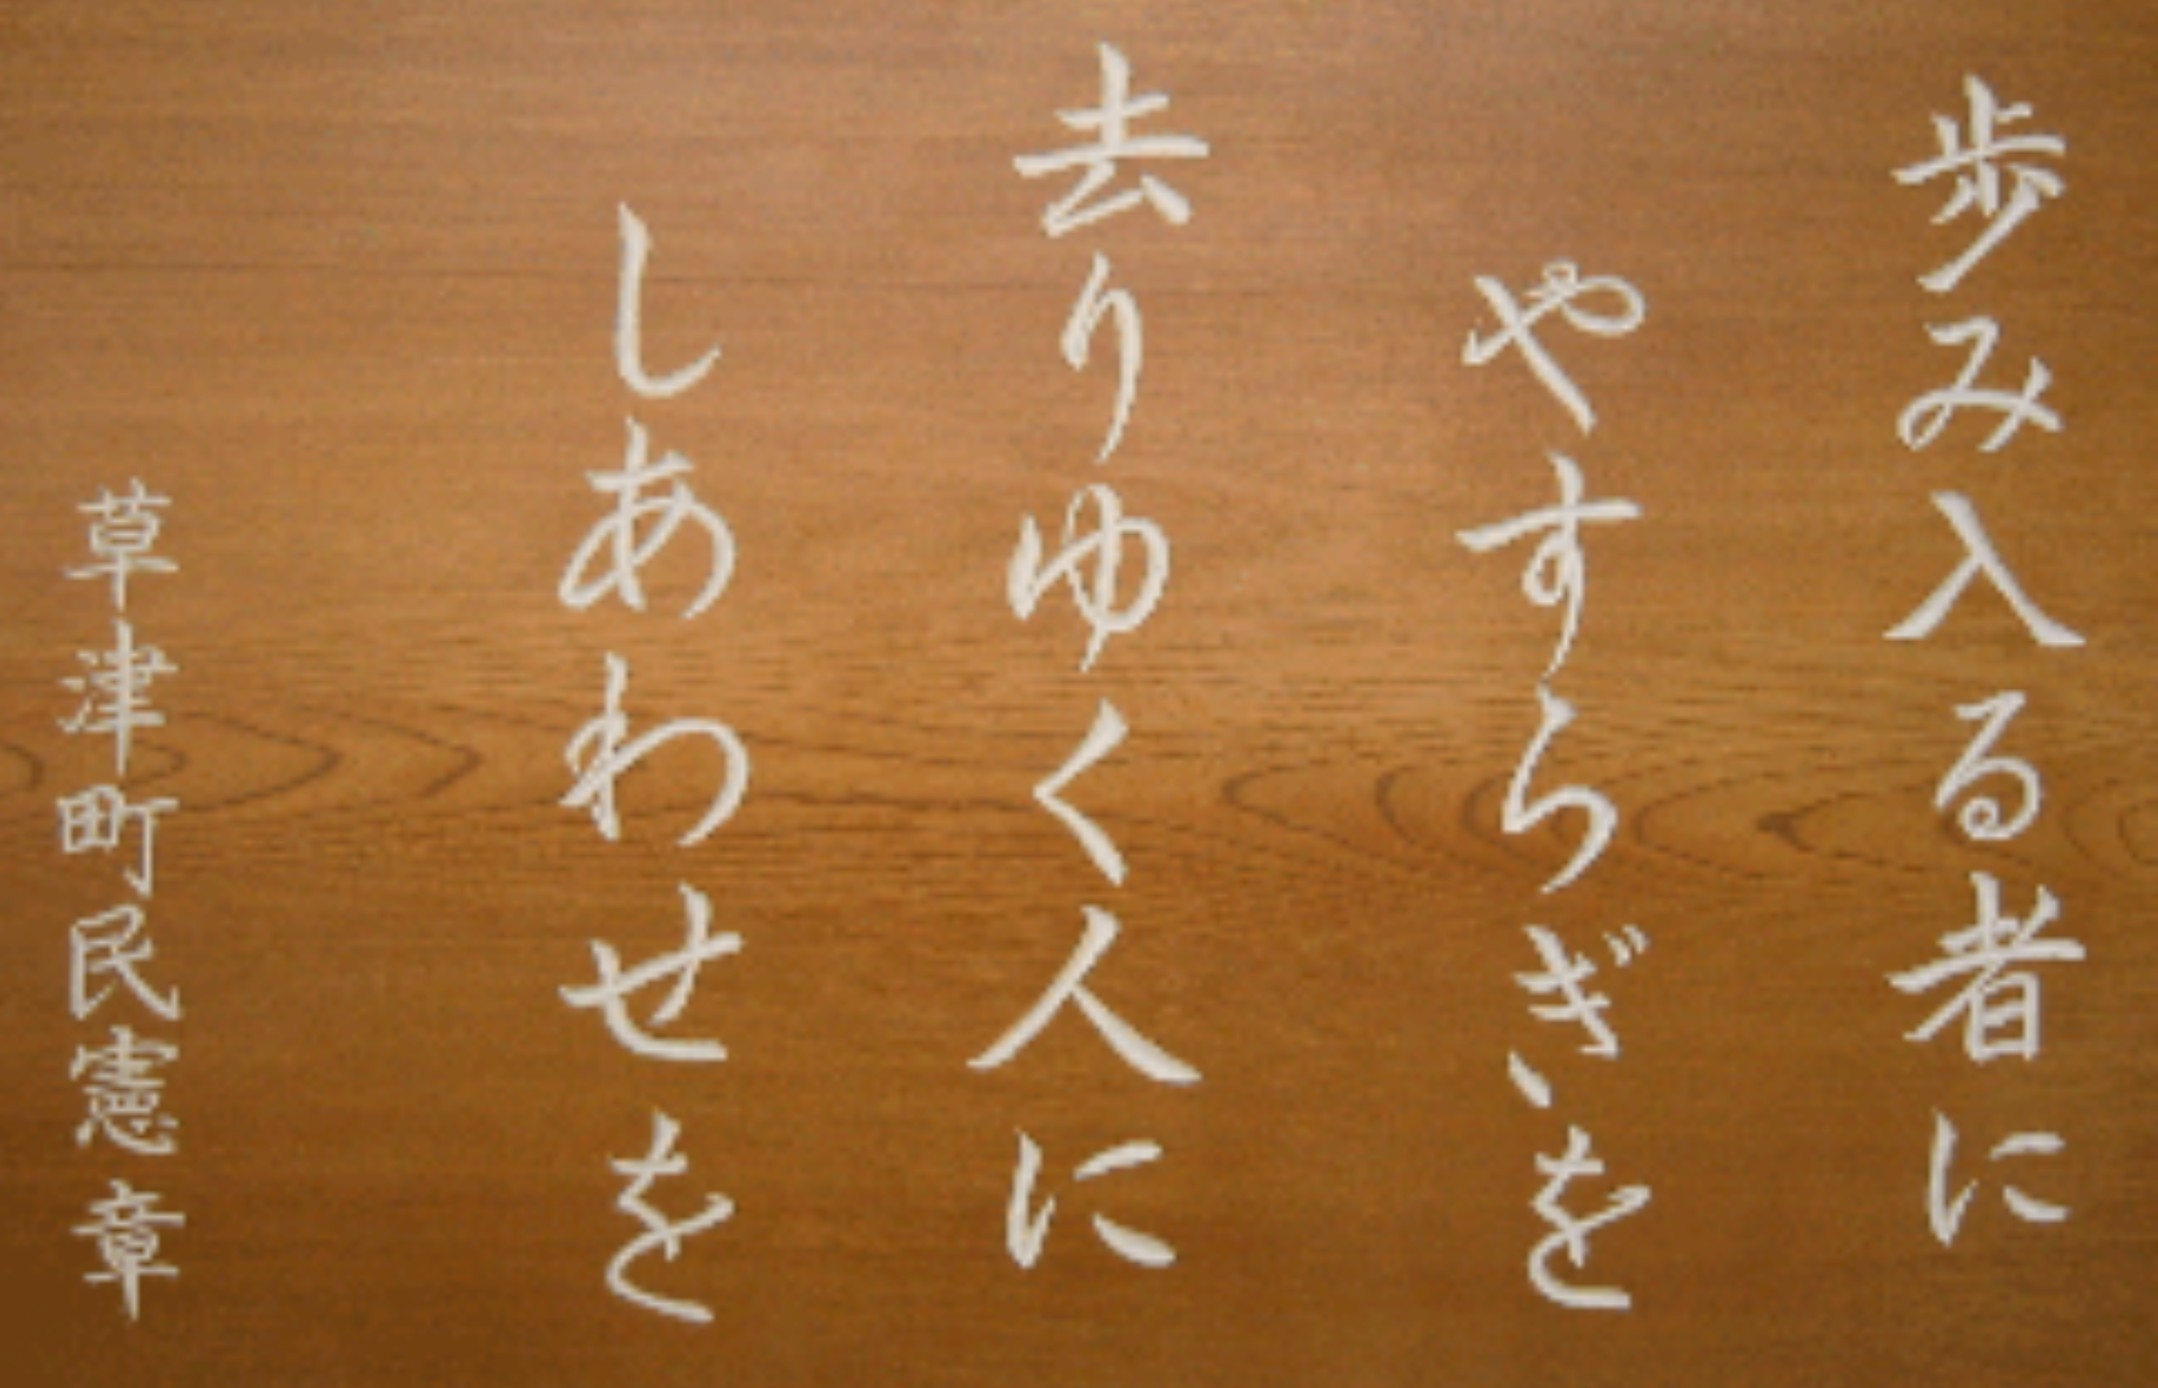 歩み入る者に
やすらぎを
去りゆく人に
しあわせを
草津町民憲章